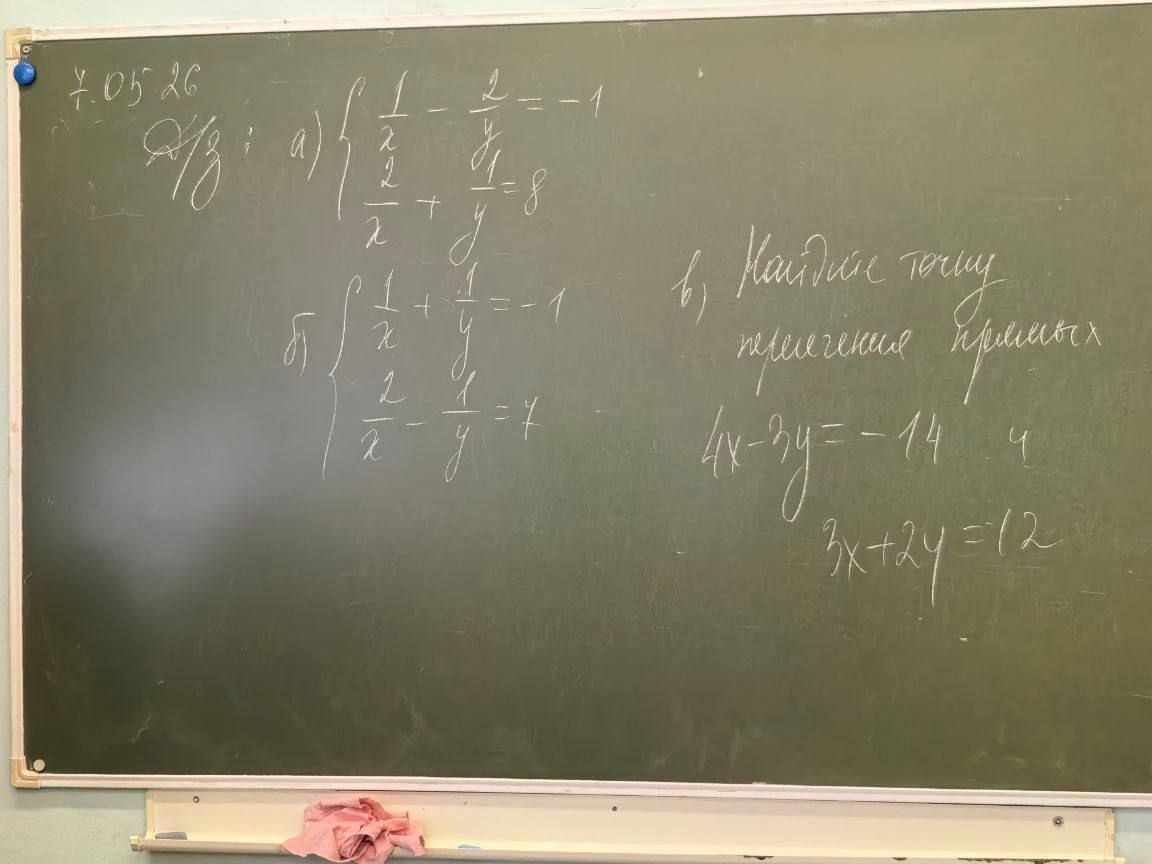 7.05.26
Д/з: а) { 1/x - 2/y = -1
2/x + 1/y = 8
б) { 1/x + 1/y = -1
2/x - 1/y = 7
в) Найдите точку
пересечения прямых
4x-3y=-14 и
3x+2y=12